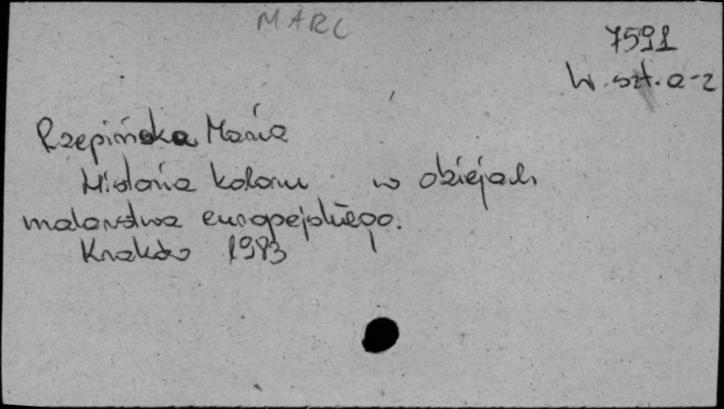 MARC
7591
W. szt. a-z
Rzepińska Maria
Historia koloru w dziejach
malarstwa europejskiego.
Kraków 1983